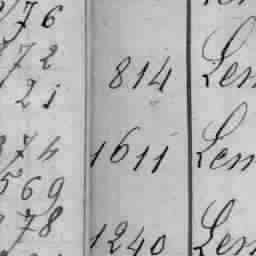 76
72 814 Len
21
74 1611 Len
569
78 1240 Len